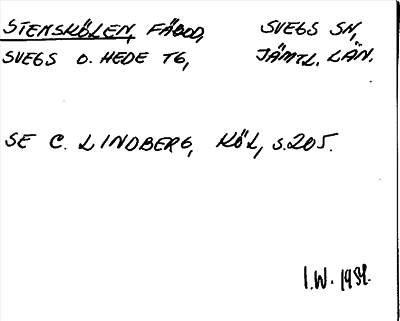 STENSKÖLEN, FÄBOD, SVEGS SN,
SVEGS O. HEDE TG, JÄMTL. LÄN.
SE C. LINDBERG, KÖL, S.205.
I.W.